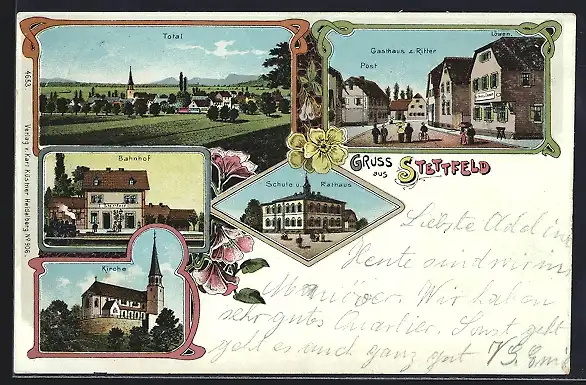 Total
Gasthaus z. Ritter
Löwen.
Post
Bahnhof
Gruss aus Stettfeld
Schule u. Rathaus
Kirche
4653
Verlag v. Karl Küstner Heidelberg No 906.
Liebste Adeline
Heute sind wir im
Manöver. Wir haben
sehr gutes Quartier. Sonst geht
geht es auch ganz gut